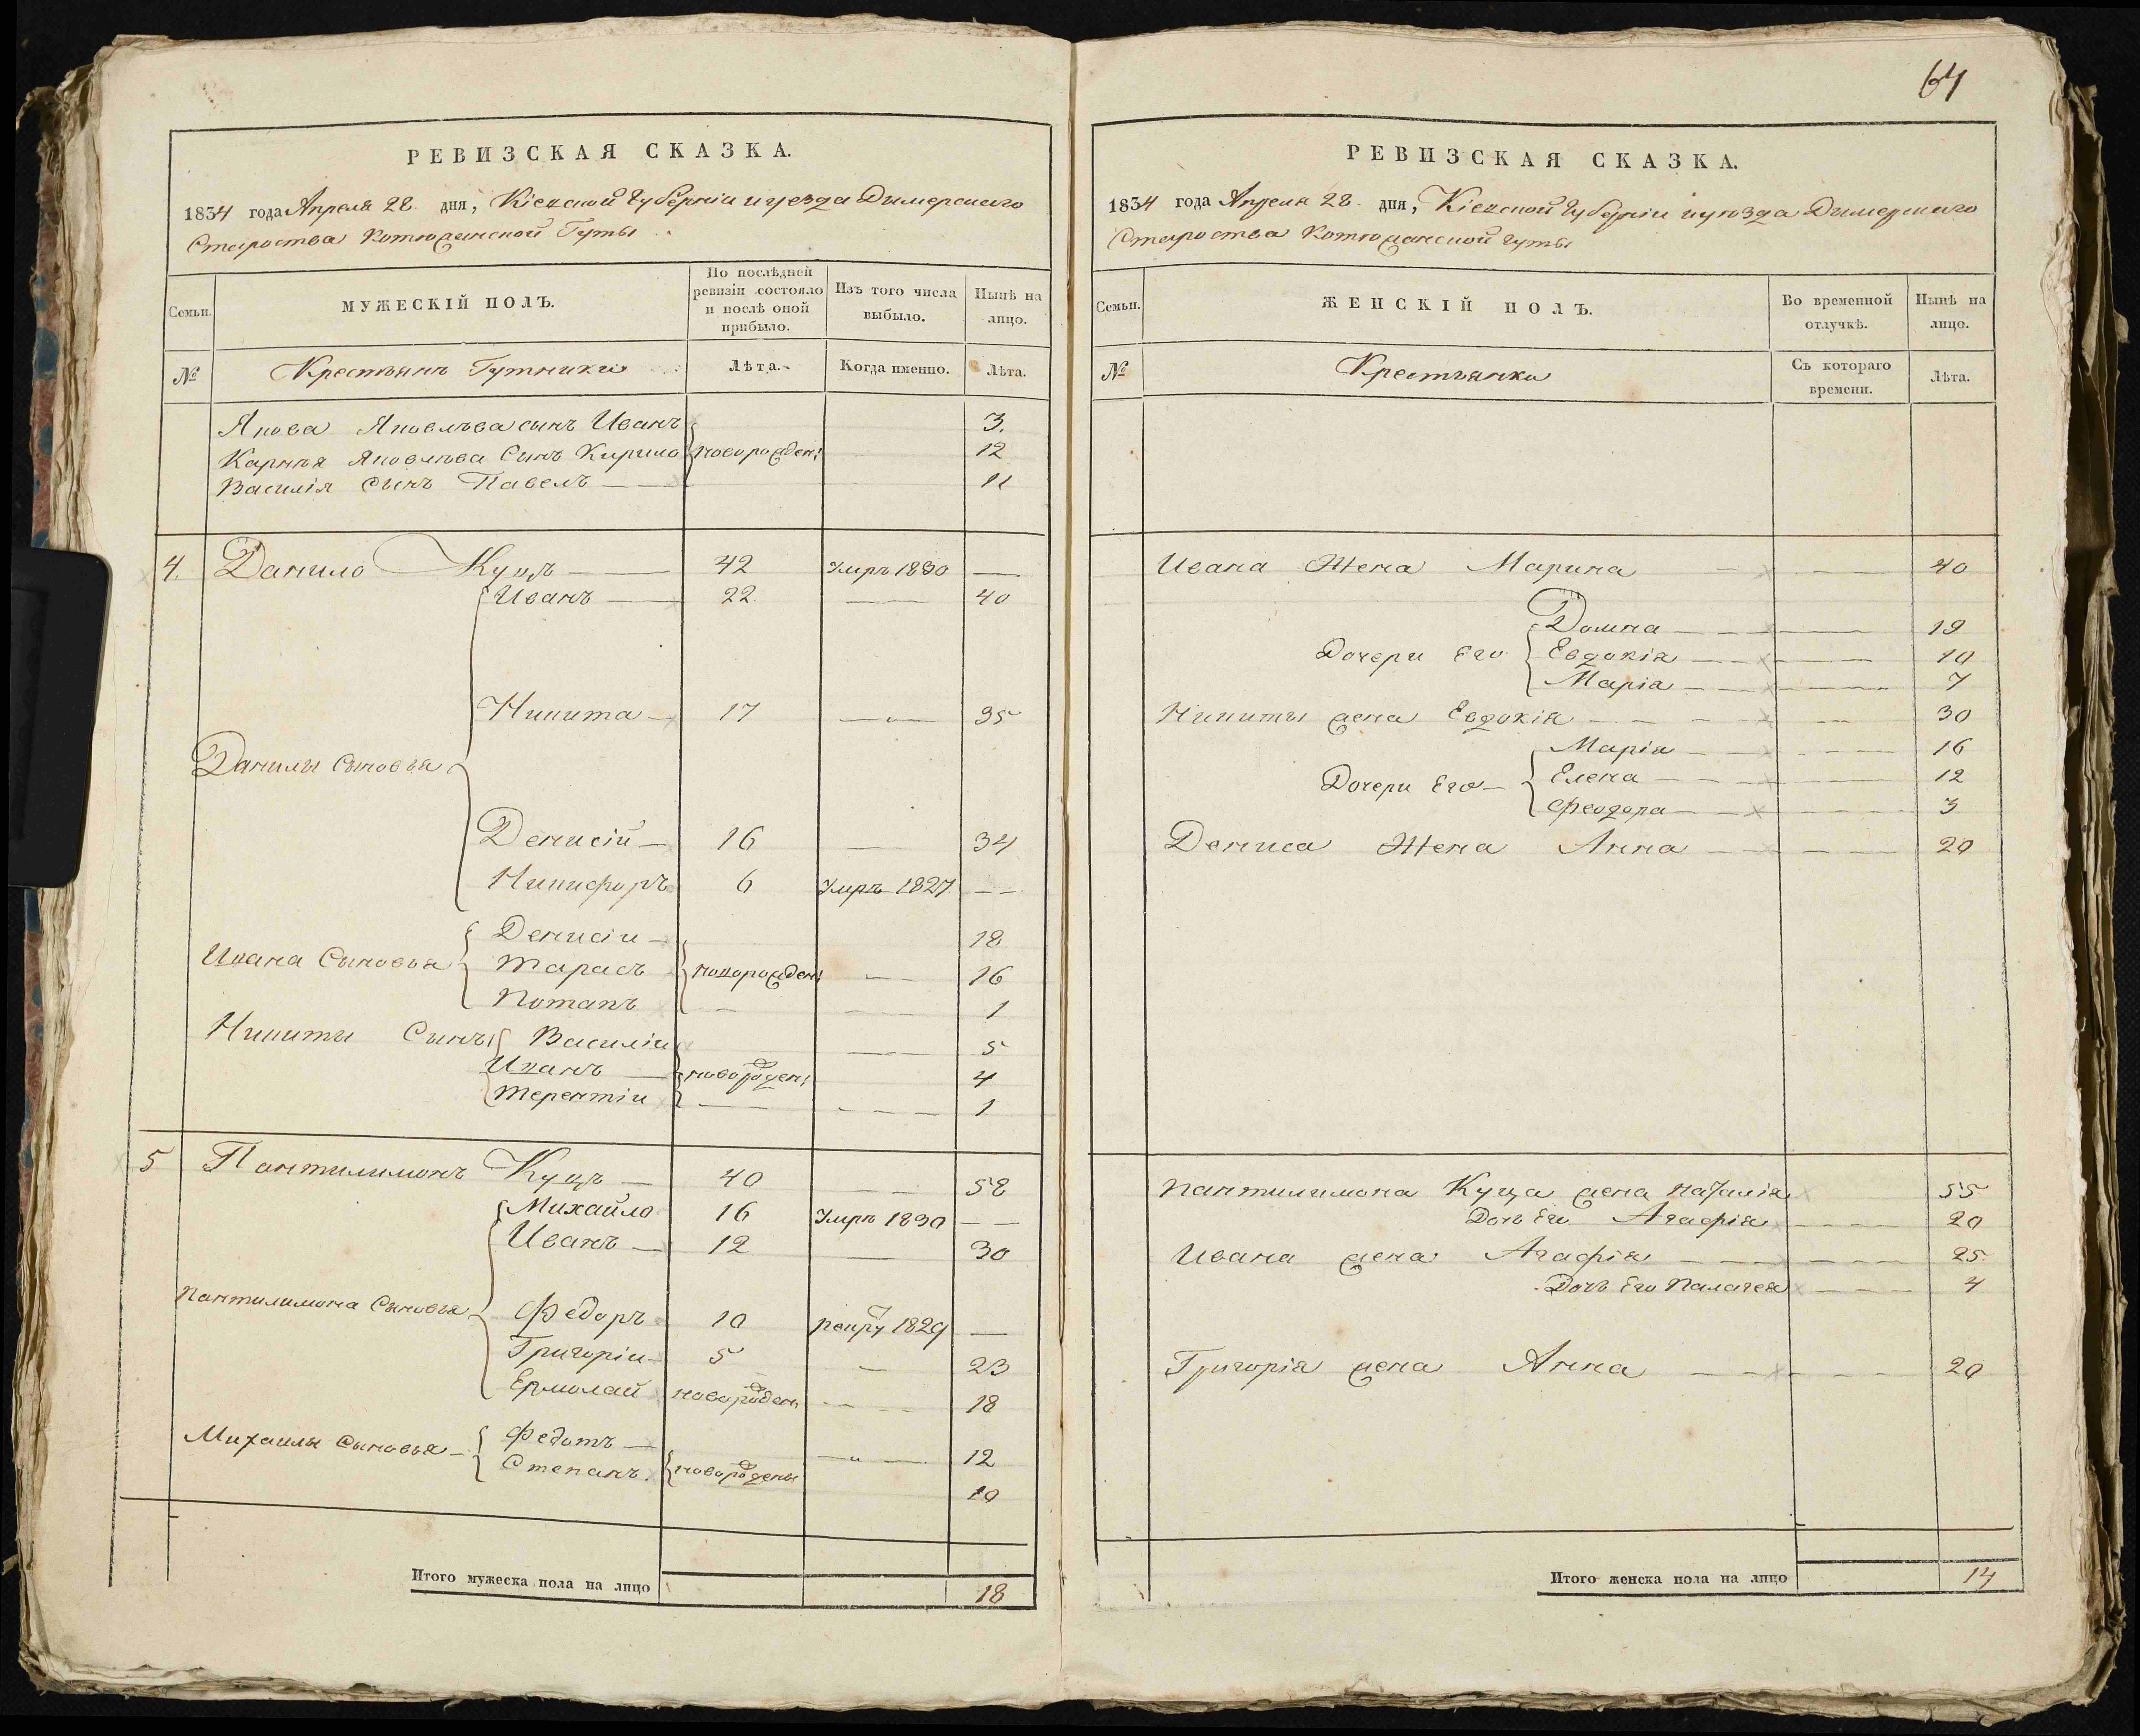 РЕВИЗСКАЯ СКАЗКА.
1834 года Апреля 28 дня, Кіевской Губерніи и уезда Димерскаго
Староства Котюжанской Гуты
Семьи. МУЖЕСКІЙ ПОЛЪ. По послѣдней ревизіи состояло и послѣ оной прибыло. Изъ того числа выбыло. Нынѣ на лицо.
№ Крестьянъ Гутники Лѣта. Когда именно. Лѣта.
Якова Яковлѣва сынъ Иванъ 3.
Карнѣя Яковлѣва Сынъ Кирило новорожден: 12
Василія Сынъ Павелъ — 11
4. Данило Куцъ — 42 Умръ 1830 —
Иванъ — 22. — 40
Никита — 17 — 35
Данилы Сыновья
Денисій — 16 — 34
Никифоръ 6 Умръ 1827 —
Денисіи — 18
Ивана Сыновья Тарасъ новорожден: — 16
Потапъ — — 1
Никиты Сынъ: Василіи — 5
Иванъ — новорожден: 4
Терентіи — — 1
5 Пантилимонъ Куцъ — 40 — 58
Михайло 16 Умръ 1830 —
Иванъ — 12 — 30
Пантилимона Сыновья Федоръ 10 рекрут 1829 —
Григоріи — 5 — 23
Ермолай новорожден: — 18
Михаилы Сыновья — Федотъ — — 12
Степанъ. новорождены 10
Итого мужеска пола на лицо 18
64
РЕВИЗСКАЯ СКАЗКА.
1834 года Апреля 28 дня, Кіевской Губерніи и уѣзда Димерскаго
Староства Котюжанской Гуты
Семьи. ЖЕНСКІЙ ПОЛЪ. Во временной отлучкѣ. Нынѣ на лицо.
№ Крестьянки Съ котораго времени. Лѣта.
Ивана Жена Марина — 40
Домна — 19
Дочери Его Евдокія — 10
Марія — 7
Никиты жена Евдокія — 30
Марія — 16
Дочери Его — Елена — 12
Феодора — 3
Дениса Жена Анна — 20
Пантилимона Куца жена Наталія 55
Дочь Его Агафія — 20
Ивана жена Агафія — 25
Дочь Его Палагея — 4
Григорія жена Анна — 20
Итого женска пола на лицо 14